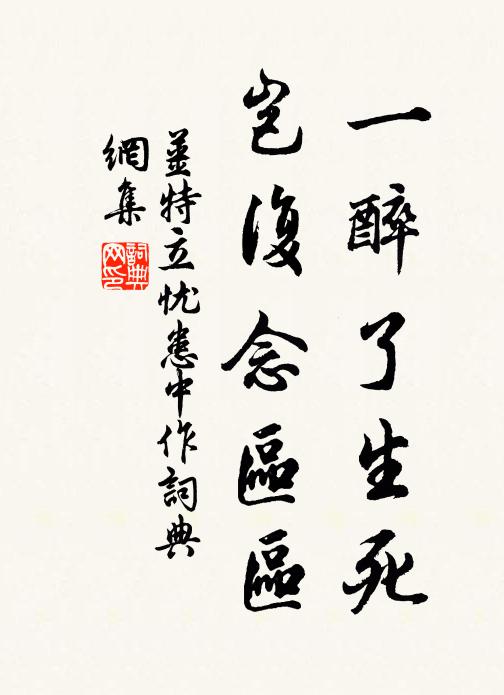 一醉了生死
豈復念區區
薑特立忧患中作詞典
網集
詞典
网印